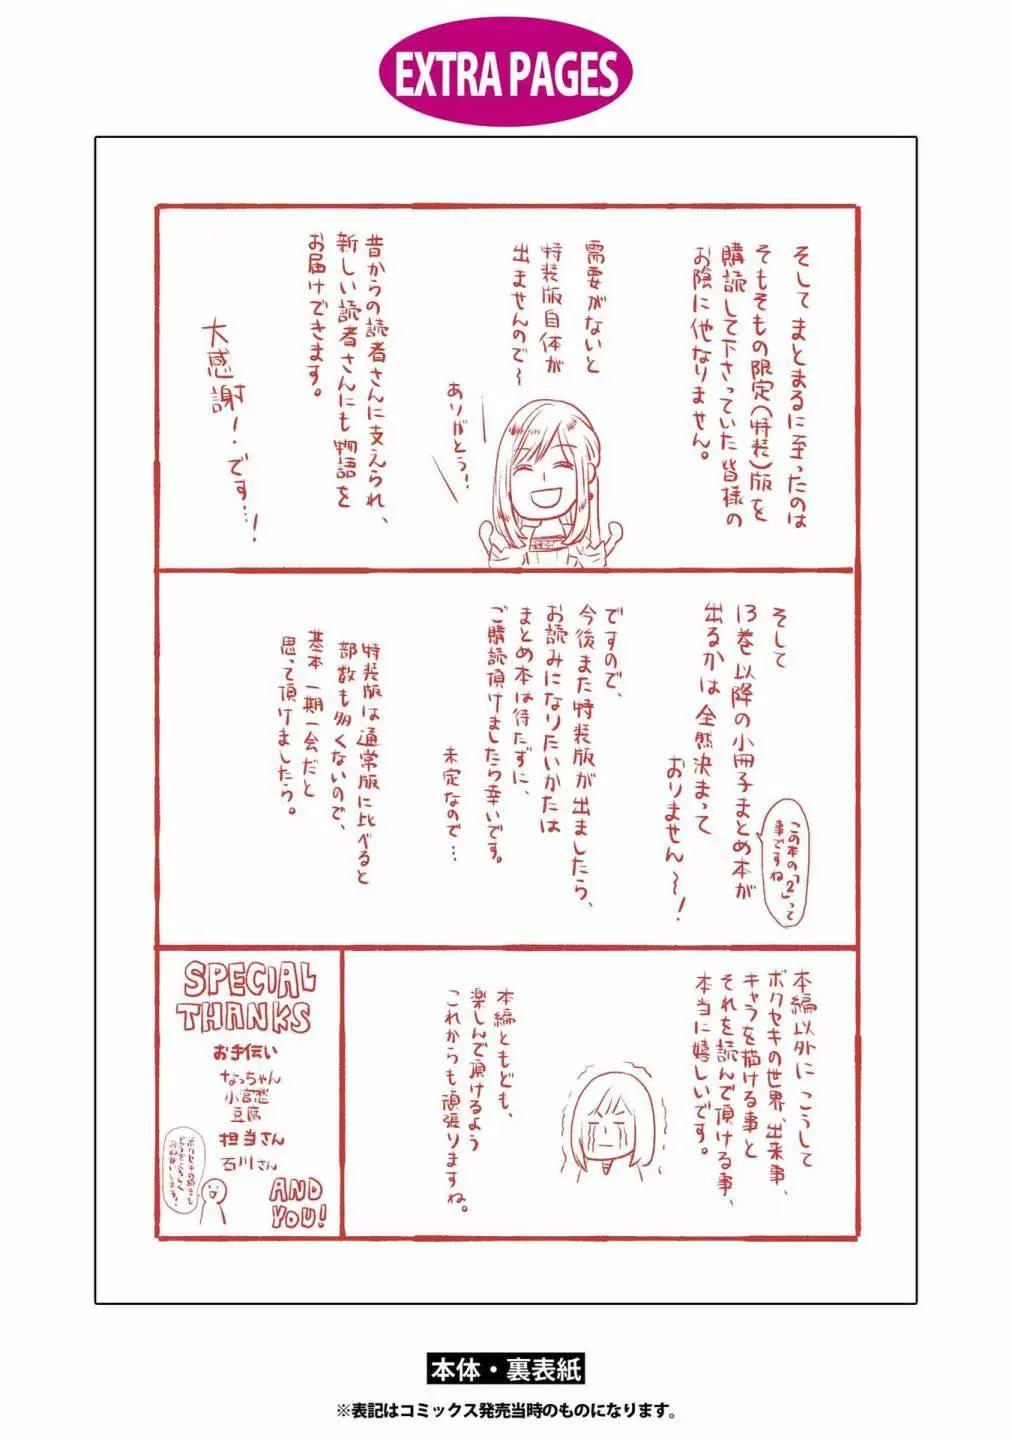 EXTRA PAGES
そしてまとまるに至ったのは
そもそもの限定(特装)版を
購読して下さっていた皆様の
お陰に他なりません。
需要がないと
特装版自体が
出ませんので〜
ありがとう!
昔からの読者さんに支えられ、
新しい読者さんにも物語を
お届けできます。
大感謝!です…!
そして
13巻以降の小冊子まとめ本が
出るかは全然決まって
おりません〜!
この本の「2」って
事ですね
ですので、
今後また特装版が出ましたら、
お読みになりたいかたは
まとめ本は待たずに、
ご購読頂けましたら幸いです。
未定なので…
特装版は通常版に比べると
部数も多くないので、
基本一期一会だと
思って頂けましたら。
本編以外にこうして
ボクセキの世界、出来事、
キャラを描ける事と
それを読んで頂ける事、
本当に嬉しいです。
本編ともども、
楽しんで頂けるよう
これからも頑張りますね。
SPECIAL
THANKS
お手伝い
なっちゃん
豆腐
担当さん
石川さん
AND
YOU!
本体・裏表紙
※表記はコミックス発売当時のものになります。